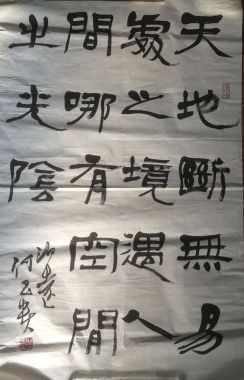 天地斷無易
處之境遇人
間哪有空閒
之光陰
何